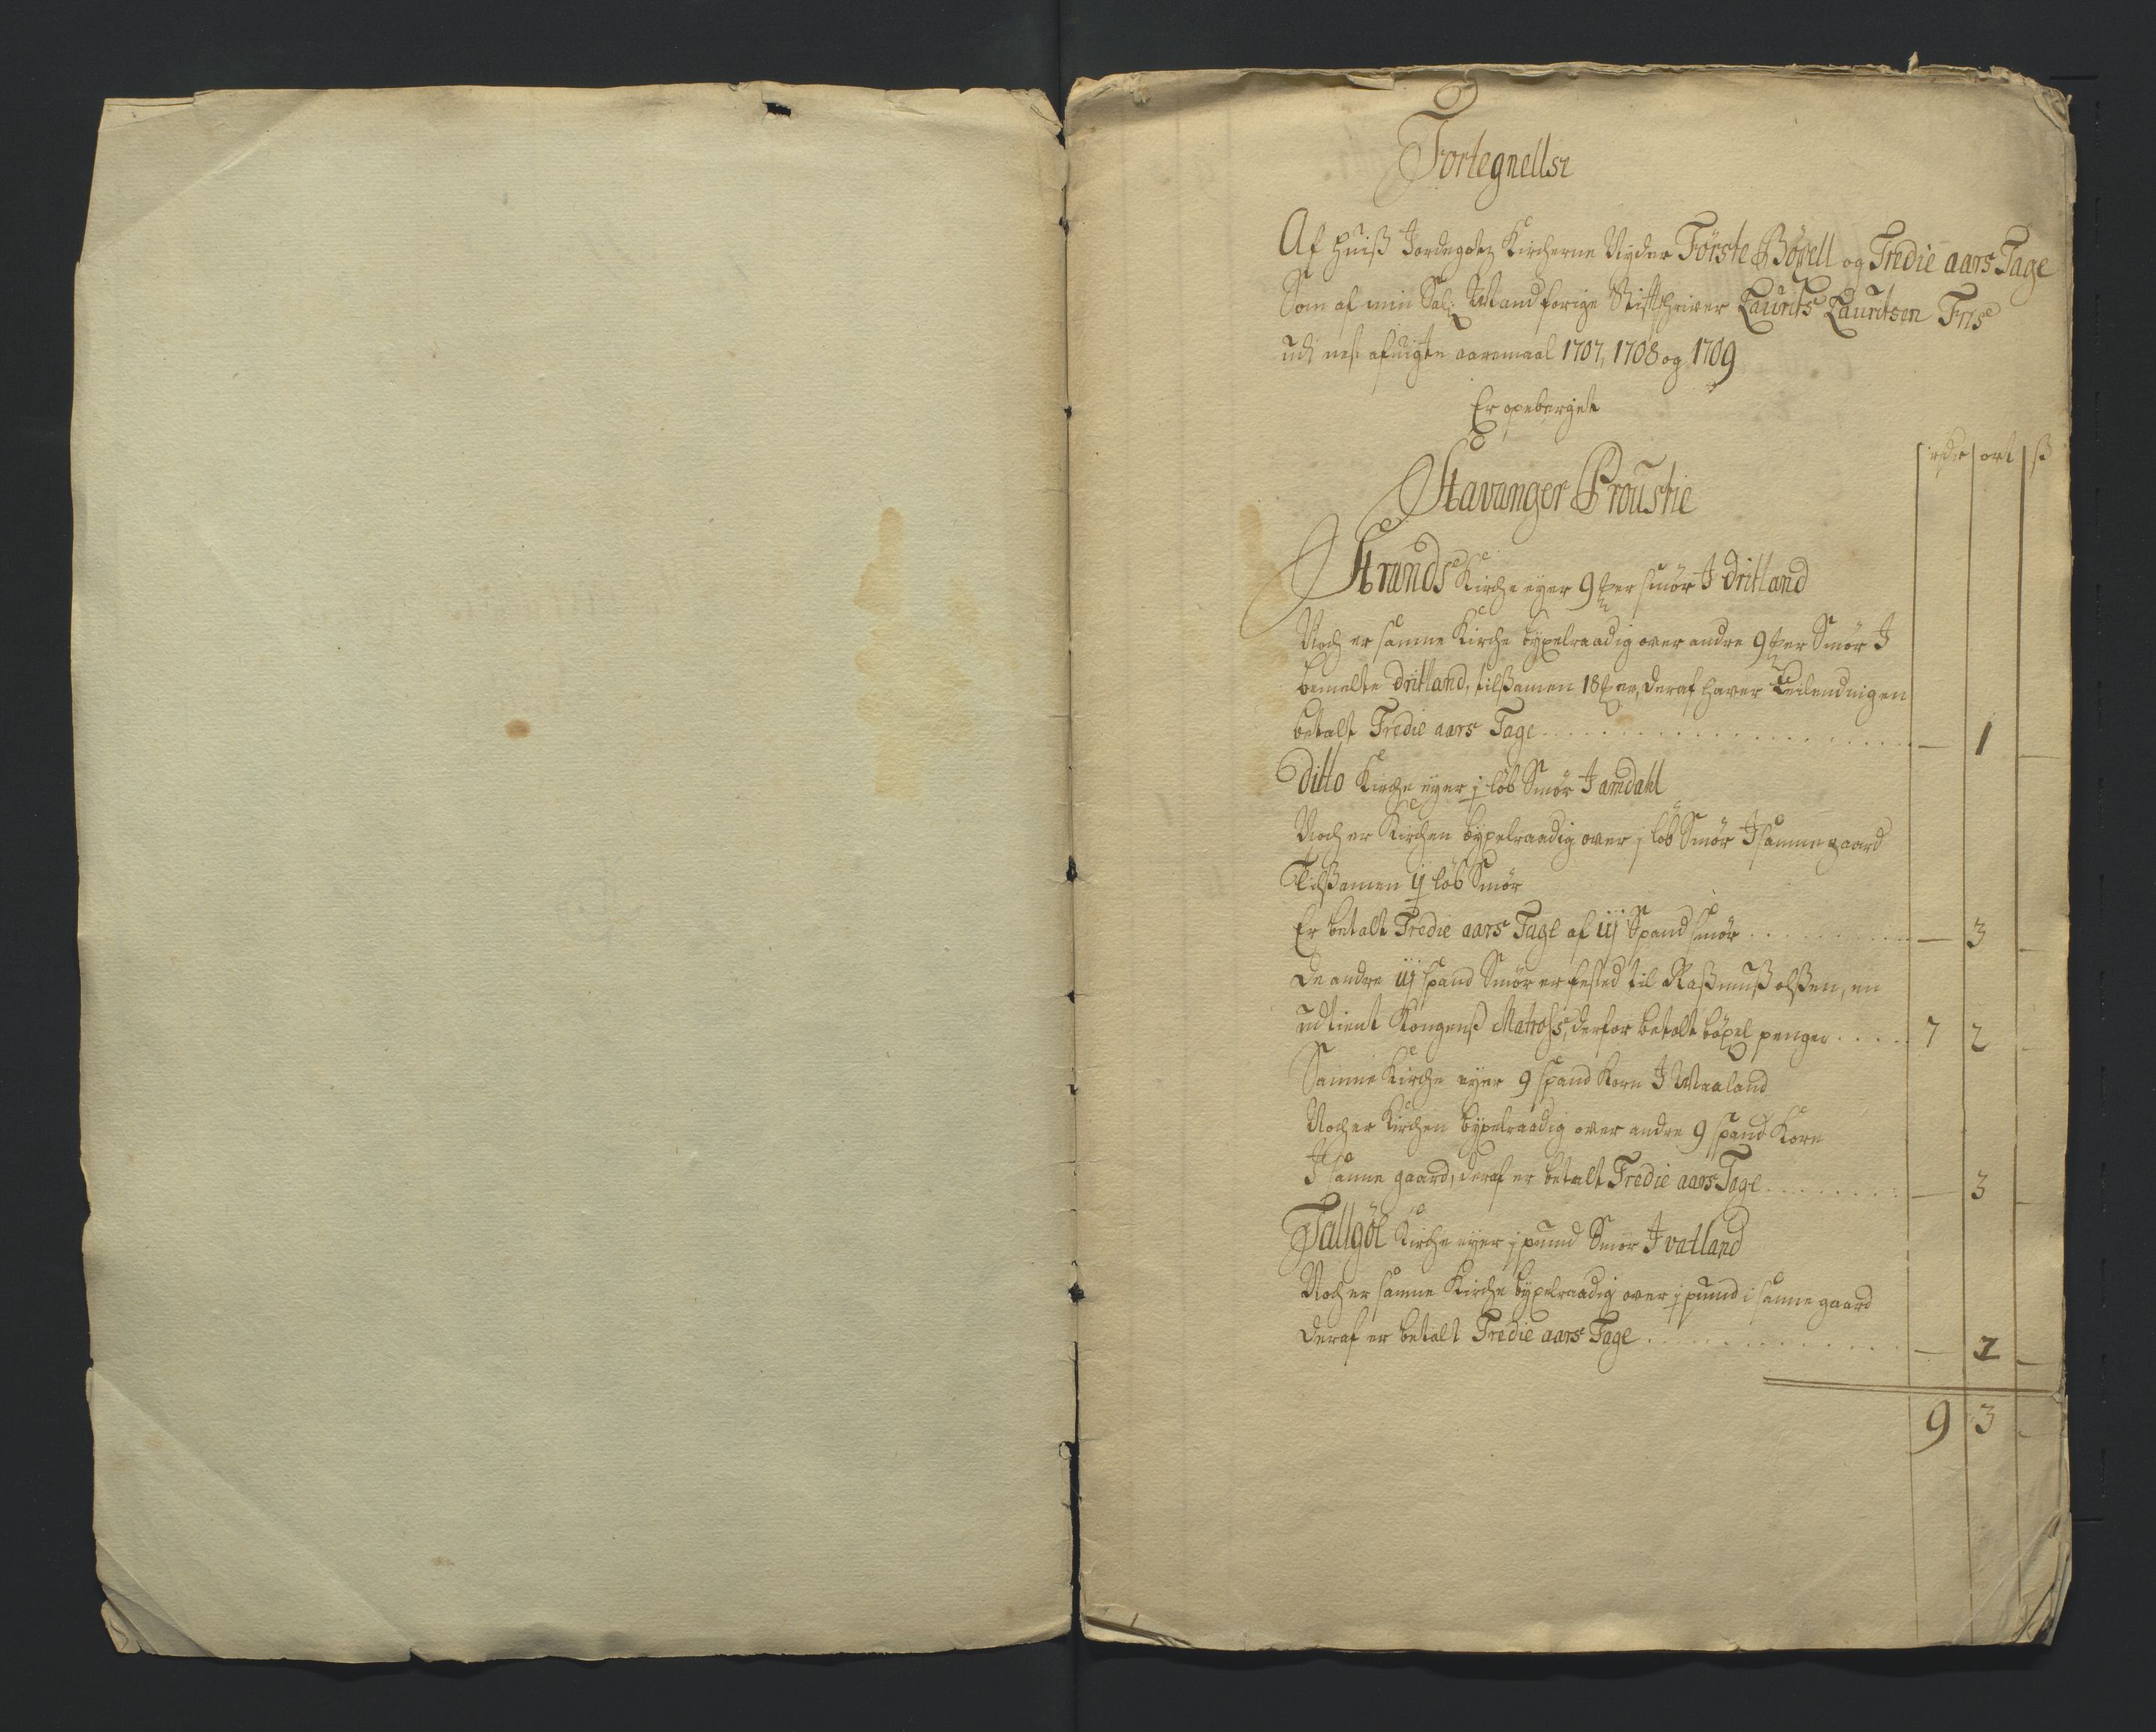 Fortegnellse
Af huiß Jordegotz Kircherne Nyder Förste Böxell og Tredie aars Tage
Som af min Sal: Mand forige Stiftschriver Laurits Lauritsen Friis
udi nest afvigte aaremaal 1707, 1708 og 1709
Er opebærget
rdr ort ß
Stavanger Proustie
Strands Kirche eyer 9 smör J dritland
Noch er samme Kirche böxelraadig over andre 9 Smör J
bemelte dritland, tilßamen 18 deraf haver Leilendnigen
betalt Tredie aars Tage — 1 —
Ditto Kirche eyer j löb Smör J amdahl
Noch er Kirchen böxelraadig over j löb Smör J samme gaard
Tilßamen ij löb Smör
Er betalt Tredie aars Tage af iij Spand smör — 3 —
De andre iij spand Smör er fested til Raßmuß olßen, en
udtient Kongenß Matros, derfor betalt böxel penge 7 2 —
Samme Kirche eyer 9 spand Korn J Maaland
Noch er Kirchen böxelraadig over andre 9 spand Korn
J samme gaard, deraf er betalt Tredie aars Tage — 3 —
Jallgöe Kirche eyer j pund Smör J vatland
Noch er samme Kirche böxelraadig over j pund i samme gaard
deraf er betalt Tredie aars Tage — 2 —
9 3 —